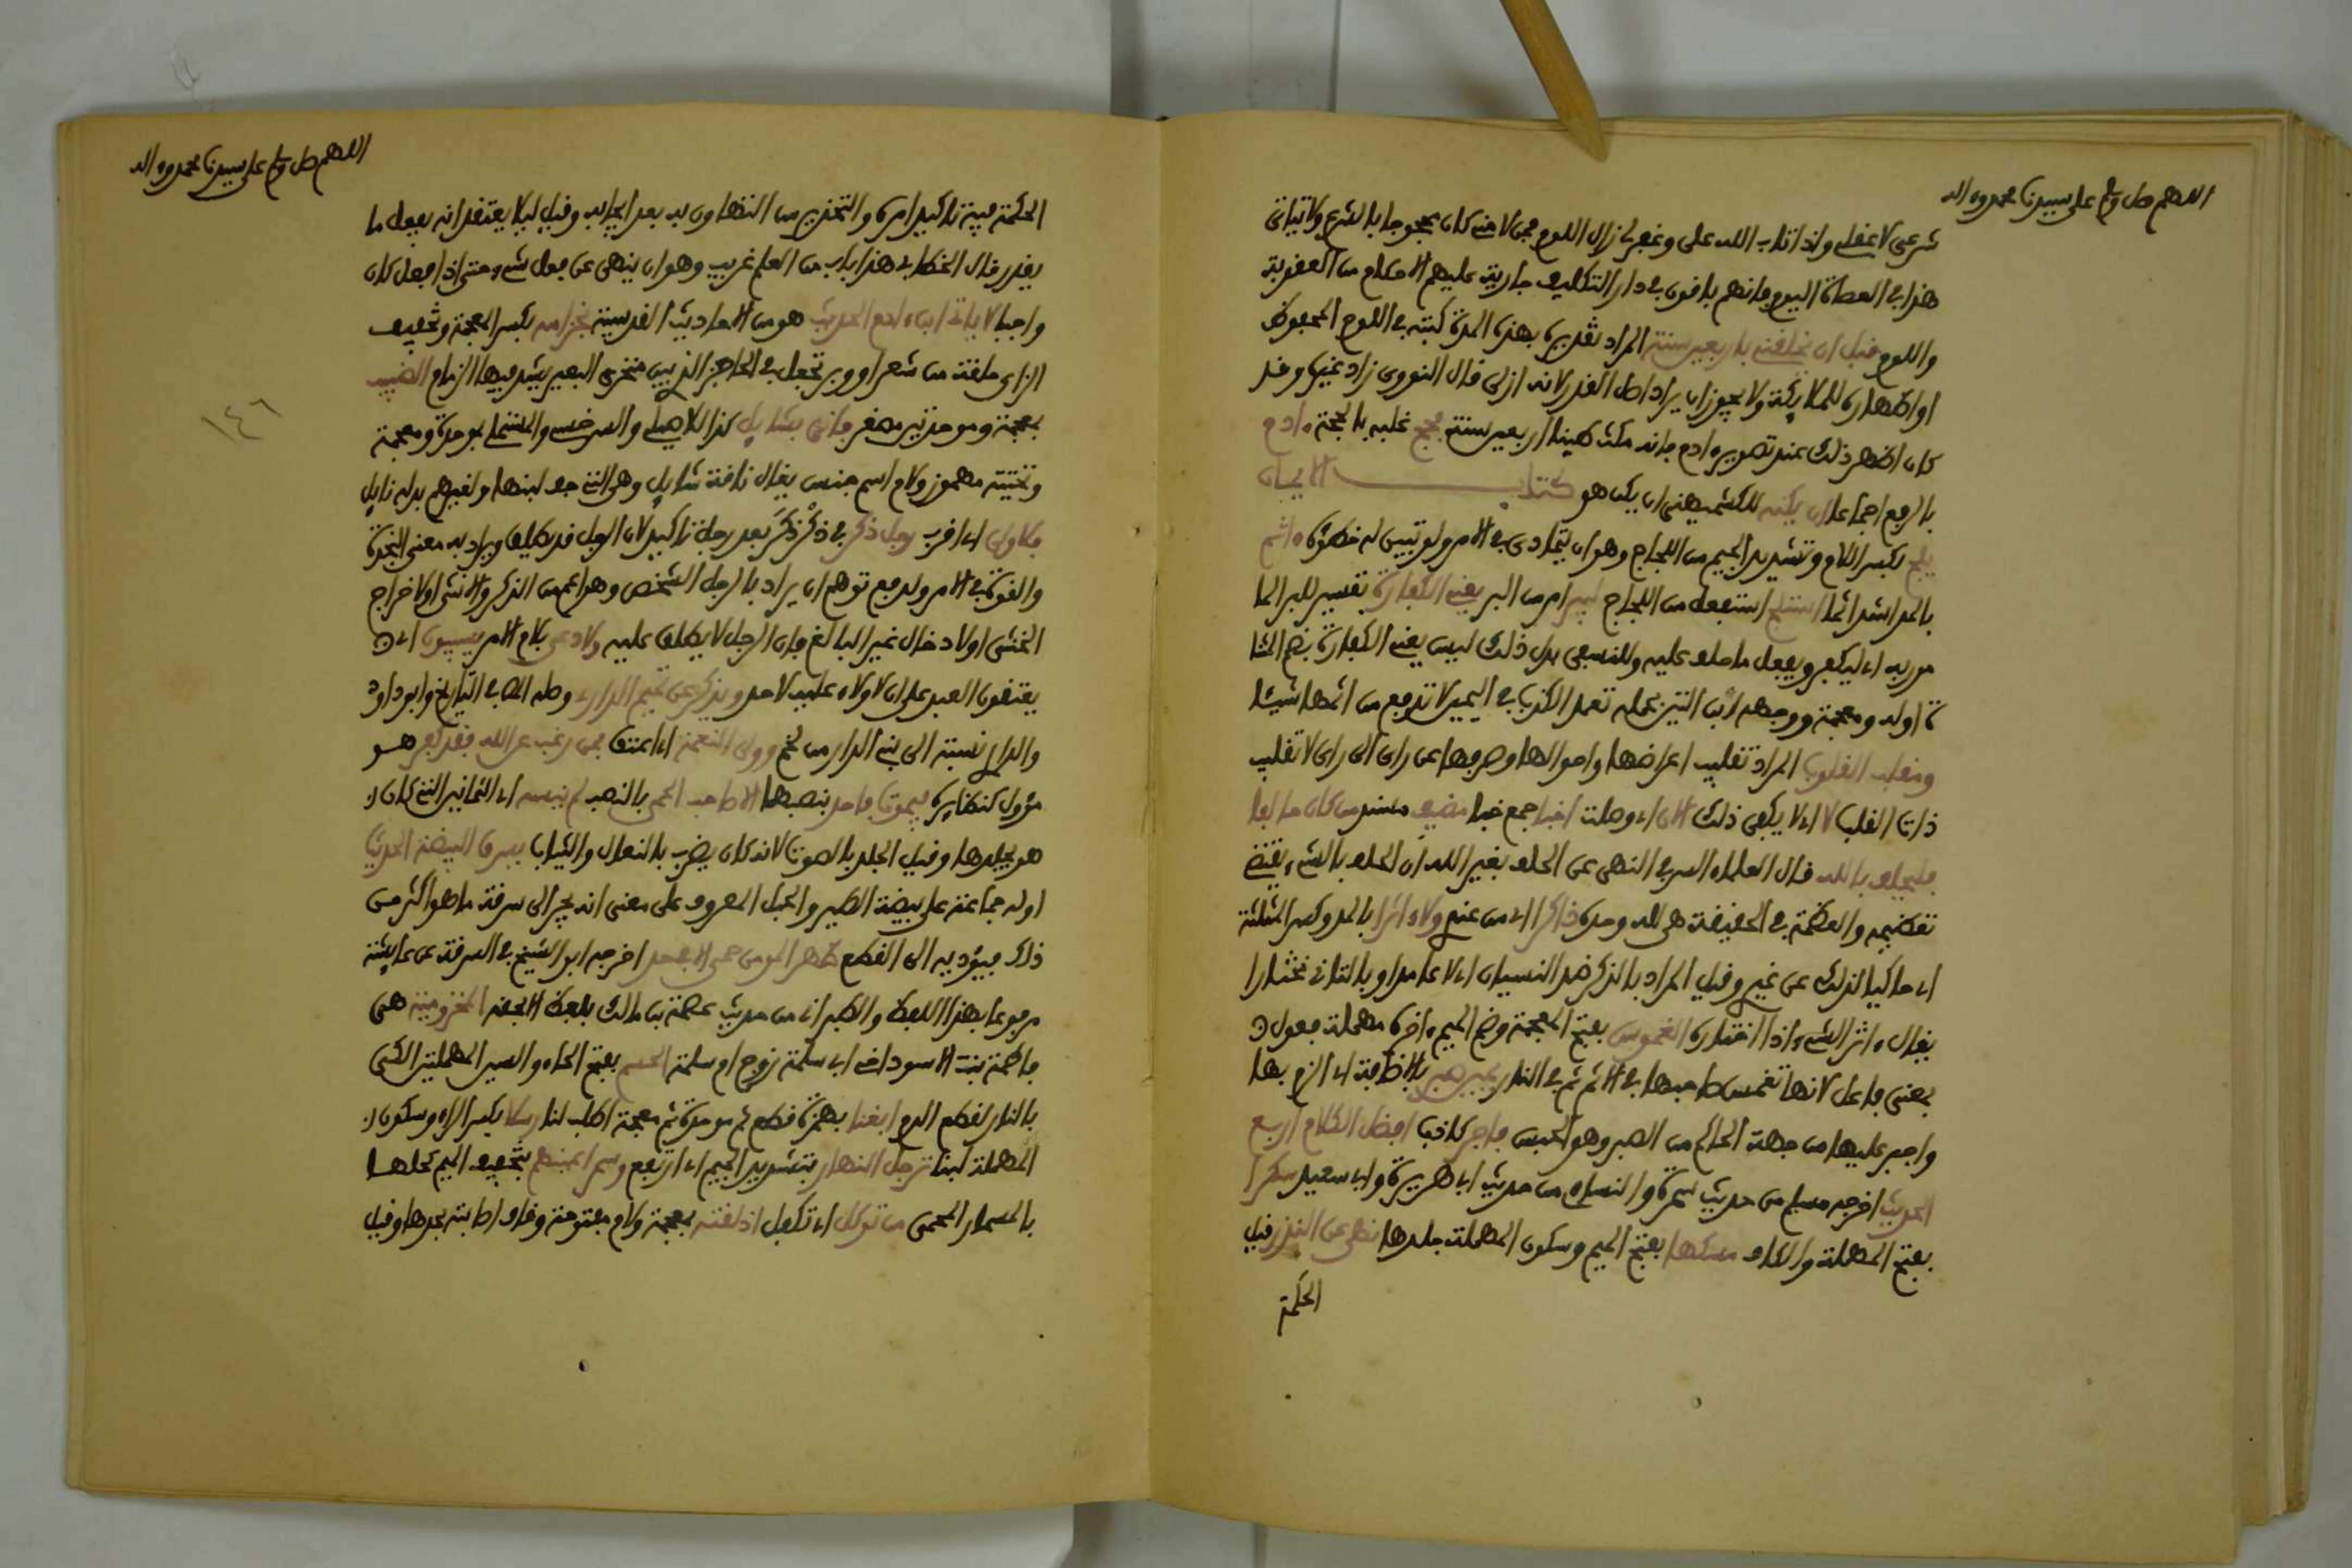 اللهم صل وسلم على سيدنا محمد وءاله
شرعي لا عقلي واذا تاب الله على وغفر لي زال اللوم فمن لامني كان محجوجا بالشرع ولا يتاتى
هذا في العصاة اليوم فانهم باقون في دار التكليف جارية عليهم الاحكام من العقوبة
واللوم قبل ان تخلقني باربعين سنة المراد تقديره بهذه المدة كتبته في اللوح المحفوظ
او اظهاره للملايكة ولا يجوز ان يراد اصل القدر لانه ازلي قال النووي زاد غيره وقد
كان اظهر ذلك عند تصوير ءادم فانه مكث طينا اربعين سنة فحج غلبه بالحجة ءادم
بالرفع اجماعا ان يكنه للكشميهني ان يكن هو كتاب الايمان
يلج بكسر اللام وتشديد الجيم من اللجاج وهو ان يتمادى في الامر ولو تبين له خطؤه ءاثم
بالمد اشد اثما استلج استفعل من اللجاج ليبر امر من البر يعني الكفارة تفسير للبر الما
مور به اي ليكفر ويفعل ما حلف عليه وللنسفي بدل ذلك ليس يغني الكفارة بضم المثنا
ة اوله ومعجمة ووجهه ان التي بحمله تعمد الكذب في اليمين لا ترفع من اثمها شيئا
ومقلب القلوب المراد تقليب اعراضها واحوالها وصرفها عن راي الى راي لا تقليب
ذات القلب لا اي لا يكفي ذلك الان اي وصلت اخبا جمع خبا مضيف مسند من كان حالفا
فليحلف بالله قال العلماء السر في النهي عن الحلف بغير الله ان الحلف بالشيء يقتضي
تعظيمه والعظمة في الحقيقة هي لله وحده ذاكرا اي من عندي ولا ءاثرا بالمد وكسر المثلثة
اي حاكيا لذلك عن غيري وقيل المراد بالذكر ضد النسيان اي لا عامدا وبالثاني مختارا
يقال ءاثر الشيء اذا اختاره الغموس بفتح المعجمة وضم الميم ءاخره مهملة فعول
بمعنى فاعل لانها تغمس صاحبها في الاثم ثم في النار يمين صبر بالاضافة اي الزم بها
واجبر عليها من جهة الحاكم من الصبر وهو الحبس فاجر كاذب افضل الكلام اربع
الحديث اخرجه مسلم من حديث سمرة والنساي من حديث ابي هريرة وابي سعيد سكرا
بفتح المهملة والكاف مسكها بفتح الميم وسكون المهملة جلدها نهى عن النذر قيل
الحكمة
اللهم صل وسلم على سيدنا محمد وءاله
الحكمة فيه تاكيد امره والتحذير من التهاون به بعد ايجابه وقيل ليلا يعتقد انه يحول ما
يقدر قال الخطابي هذا باب من العلم غريب وهو ان ينهى عن فعل شيء حتى اذا فعل كان
واجبا لا ياتي ابن ءادم الحديث هو من الاحاديث القدسية بخزامه بكسر المعجمة وتخفيف
الزاي حلقة من شعر او وبر تجعل في الحاجز الذي بين منخري البعير يشد فيها الزمام الضبيب
بمعجمة وموحدتين مصغر فاتي بشايل كذا للاصيلي والسرخسي والمستملي بموحدة ومعجمة
وتحتية مهموز ولام اسم جنس يقال ناقة شايل وهي التي جف لبنها ولغيرهم بدله نايل
فلاولى اي اقرب رجل ذكر في ذكر ذكر بعد رجل تاكيد لان الرجل قد يطلق ويراد به معنى النجدة
والقوة في الامر ولدفع توهم ان يراد بالرجل الشخص وهو اعم من الذكر والانثى او لاخراج
الخنثى او لادخال غير البالغ فان الرجل لا يطلق عليه ولادعي بلام الامر يسيبون اي
يعتقون العبد على ان لا ولاء عليه لاحد ويذكر عن تميم الداري وصله في التاريخ وابو داود
والداري نسبة الى بني الدار من لخم وولي النعمة اي اعتق فمن رغب عن الله فقد كفر هو
مؤول كنظايره فيموت فاجد بنصبهما الا صاحب الخمر بالنصب لم يسنه اي الثمانين التي كان
هو يجلدها وقيل الجلد بالصوت لانه كان يضرب بالنعال والثياب يسرق البيضة الحديث
اوله جماعة على بيضة الطير والحبل المعروف على معنى انه يجر الى سرقة ما هو اكثر من
ذلك فيؤديه الى القطع ظهر المومن حمى الا بحد اخرجه ابو الشيخ في السرقة عن عايشة
مرفوعا بهذا اللفظ والطبراني من حديث عصمة بن مالك بلفظ الا بحقه المخزومية هي
فاطمة بنت الاسود اخي ابي سلمة زوج ام سلمة الحسم بفتح الحاء والسين المهملتين الكي
بالنار لقطع الدم ابغنا بهمزة قطع ثم موحدة ثم معجمة اطلب لنا رسلا بكسر الراء وسكون
المهملة لبنا ترجل النهار بتشديد الجيم اي ارتفع وسمر اعينهم بتخفيف الميم كحلها
بالمسمار المحمى من توكل اي تكفل اذلقته بمعجمة ولام مفتوحة وقاف اصابته بحدها وقيل
١٤٦